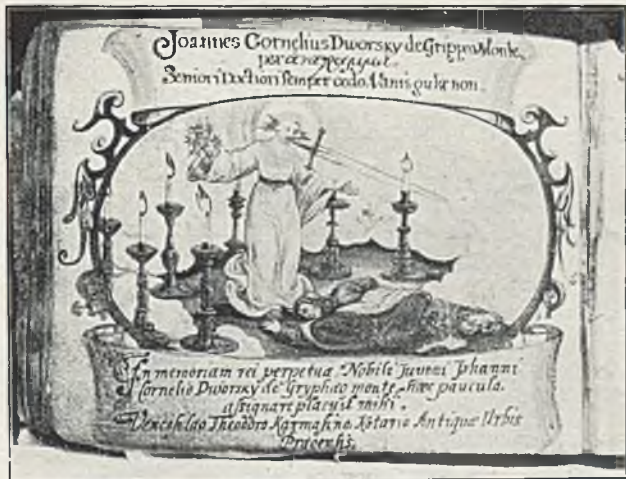 Joannes Cornelius Dworsky de Gryphæo Monte
per
Seniori Doctiori semper cedo. Vanis gulæ non.
In memoriam rei perpetuæ Nobili Juveni Johanni
Cornelio Dworsky de Gryphæo monte hæc paucula
assignare placuit mihi
Venceslao Theodoro Notario Antiquæ Urbis